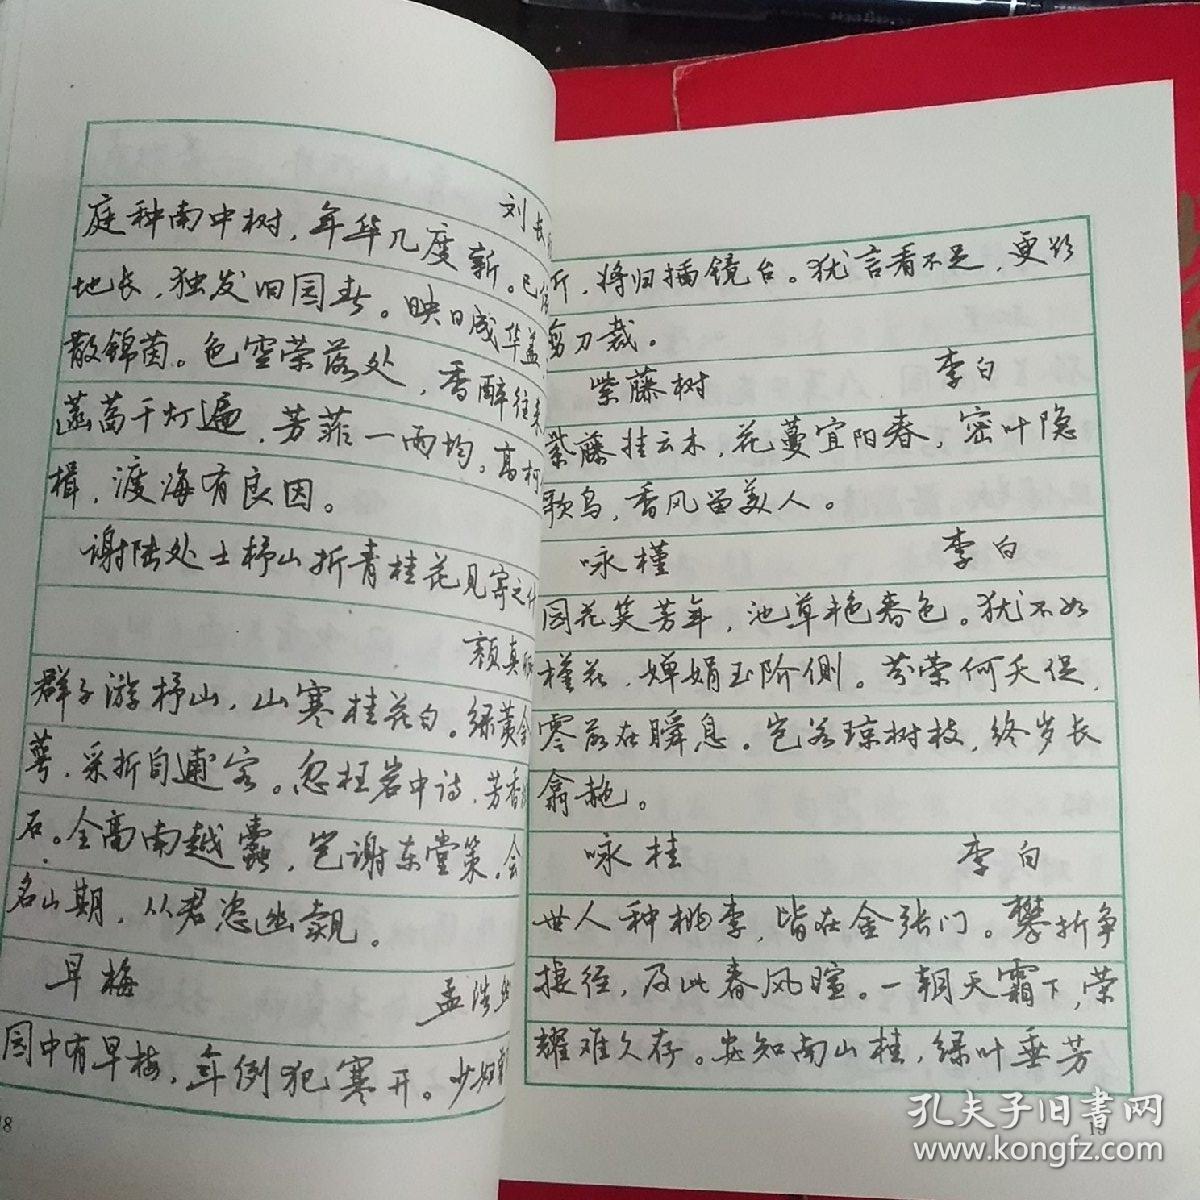 刘长
庭种南中树，年华几度新。已
地长，独发旧园春。映日成华盖
散锦茵。色空荣落处，香醉往来
菡萏千灯遍，芳菲一雨均。高柯
楫，渡海有良因。
谢陆处士杼山折青桂花见寄之什
颜真
群子游杼山，山寒桂花白。绿荑含
萼，采折自逋客。忽枉岩中诗，芳香
石。全高南越蠹，岂谢东堂策。会
名山期，从君恣幽觌。
早梅
孟浩然
园中有早梅，年例犯寒开。少妇曾
18
折，将归插镜台。犹言看不足，更欲
剪刀裁。
紫藤树 李白
紫藤挂云木，花蔓宜阳春，密叶隐
歌鸟，香风留美人。
咏槿 李白
园花笑芳年，池草艳春色。犹不如
槿花，婵娟玉阶侧。芬荣何夭促，
零落在瞬息。岂若琼树枝，终岁长
翕赩。
咏桂 李白
世人种桃李，皆在金张门。攀折争
捷径，及此春风暄。一朝天霜下，荣
耀难久存。安知南山桂，绿叶垂芳
19
孔夫子旧书网
www.kongfz.com